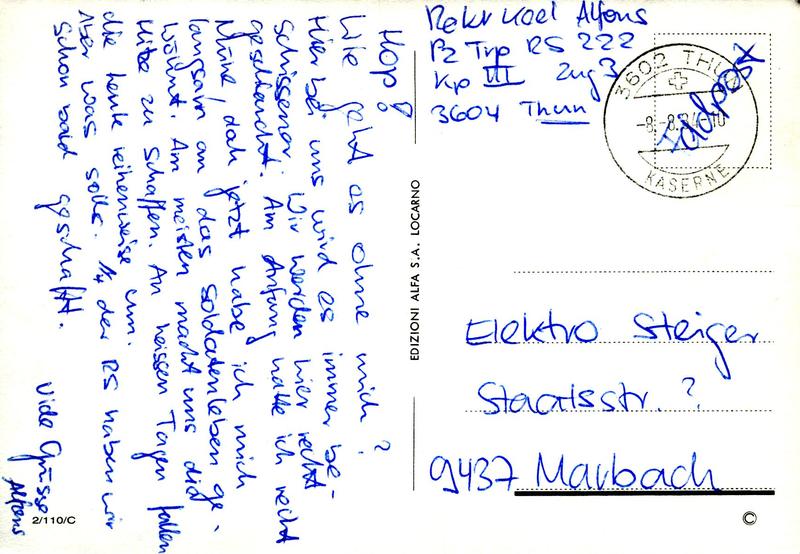 Hop!
Wie geht es ohne mich?
Hier bei uns wird es immer be-
schissener. Wir werden hier recht
geschlaucht. Am Anfang hatte ich recht
Mühe, doch jetzt habe ich mich
langsam an das Soldatenleben ge-
wöhnt. Am meisten macht uns die
Hitze zu schaffen. An heissen Tagen fallen
die Leute reihenweise um.
Aber was solls. 1/4 der RS haben wir
schon bald geschafft.
Viele Grüsse
Alfons
2/110/C
EDIZIONI ALFA S.A. LOCARNO
Rekr Koel Alfons
Pz Trp RS 222
Kp III Zug 3
3604 Thun
3602 THUN
-8.-8.84-10
KASERNE
Feldpost
Elektro Steiger
Staatsstr. ?
9437 Marbach
©